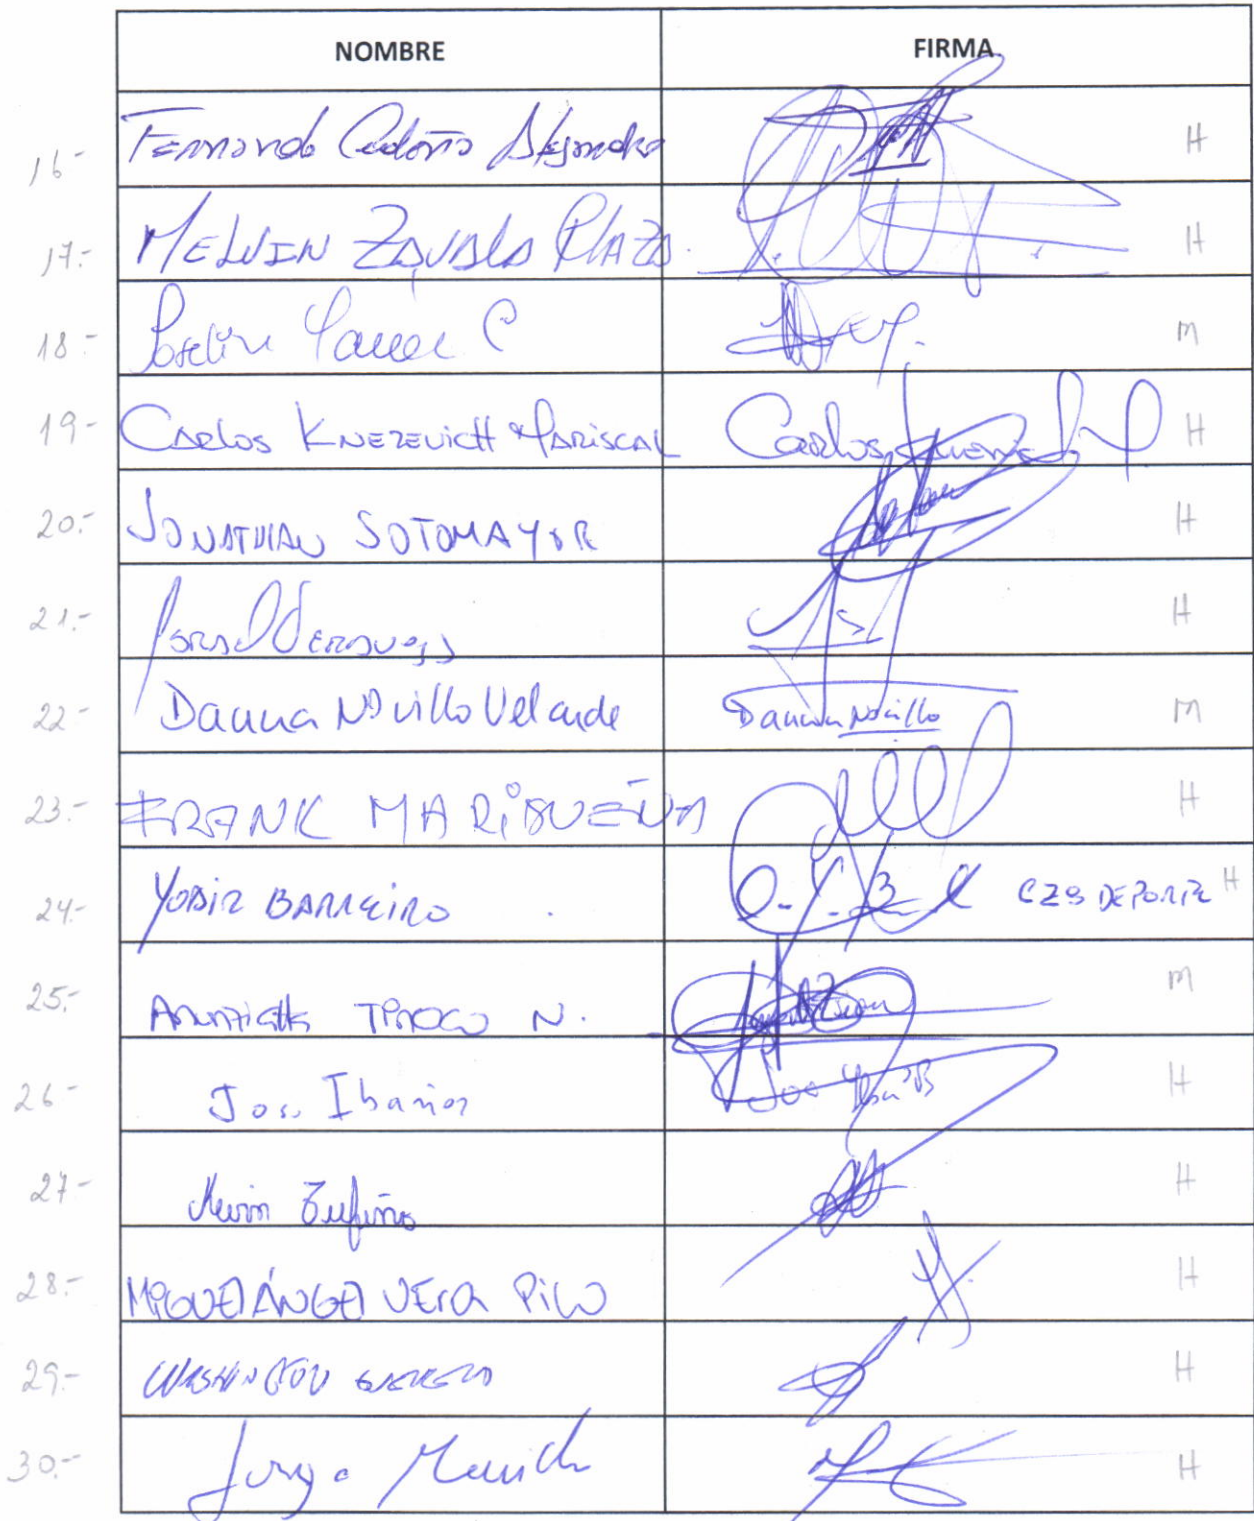 NOMBRE FIRMA
16.- Fernando Cedeño Alejandro H
17.- MELVIN ZAVALA PLAZA H
18.- C M
19.- CARLOS KNEZEVICH MARISCAL Carlos H
20.- JONATHAN SOTOMAYOR H
21.- H
22.- Danna Novillo Velarde Danna Novillo M
23.- FRANK MARIDUEÑA H
24.- YODIR BARREIRO CZ8 DEPORTE H
25.- N. M
26.- Jose Ibañez H
27.- Kevin H
28.- MIGUEL ÁNGEL VERA PICO H
29.- WASHINGTON H
30.- Jorge H